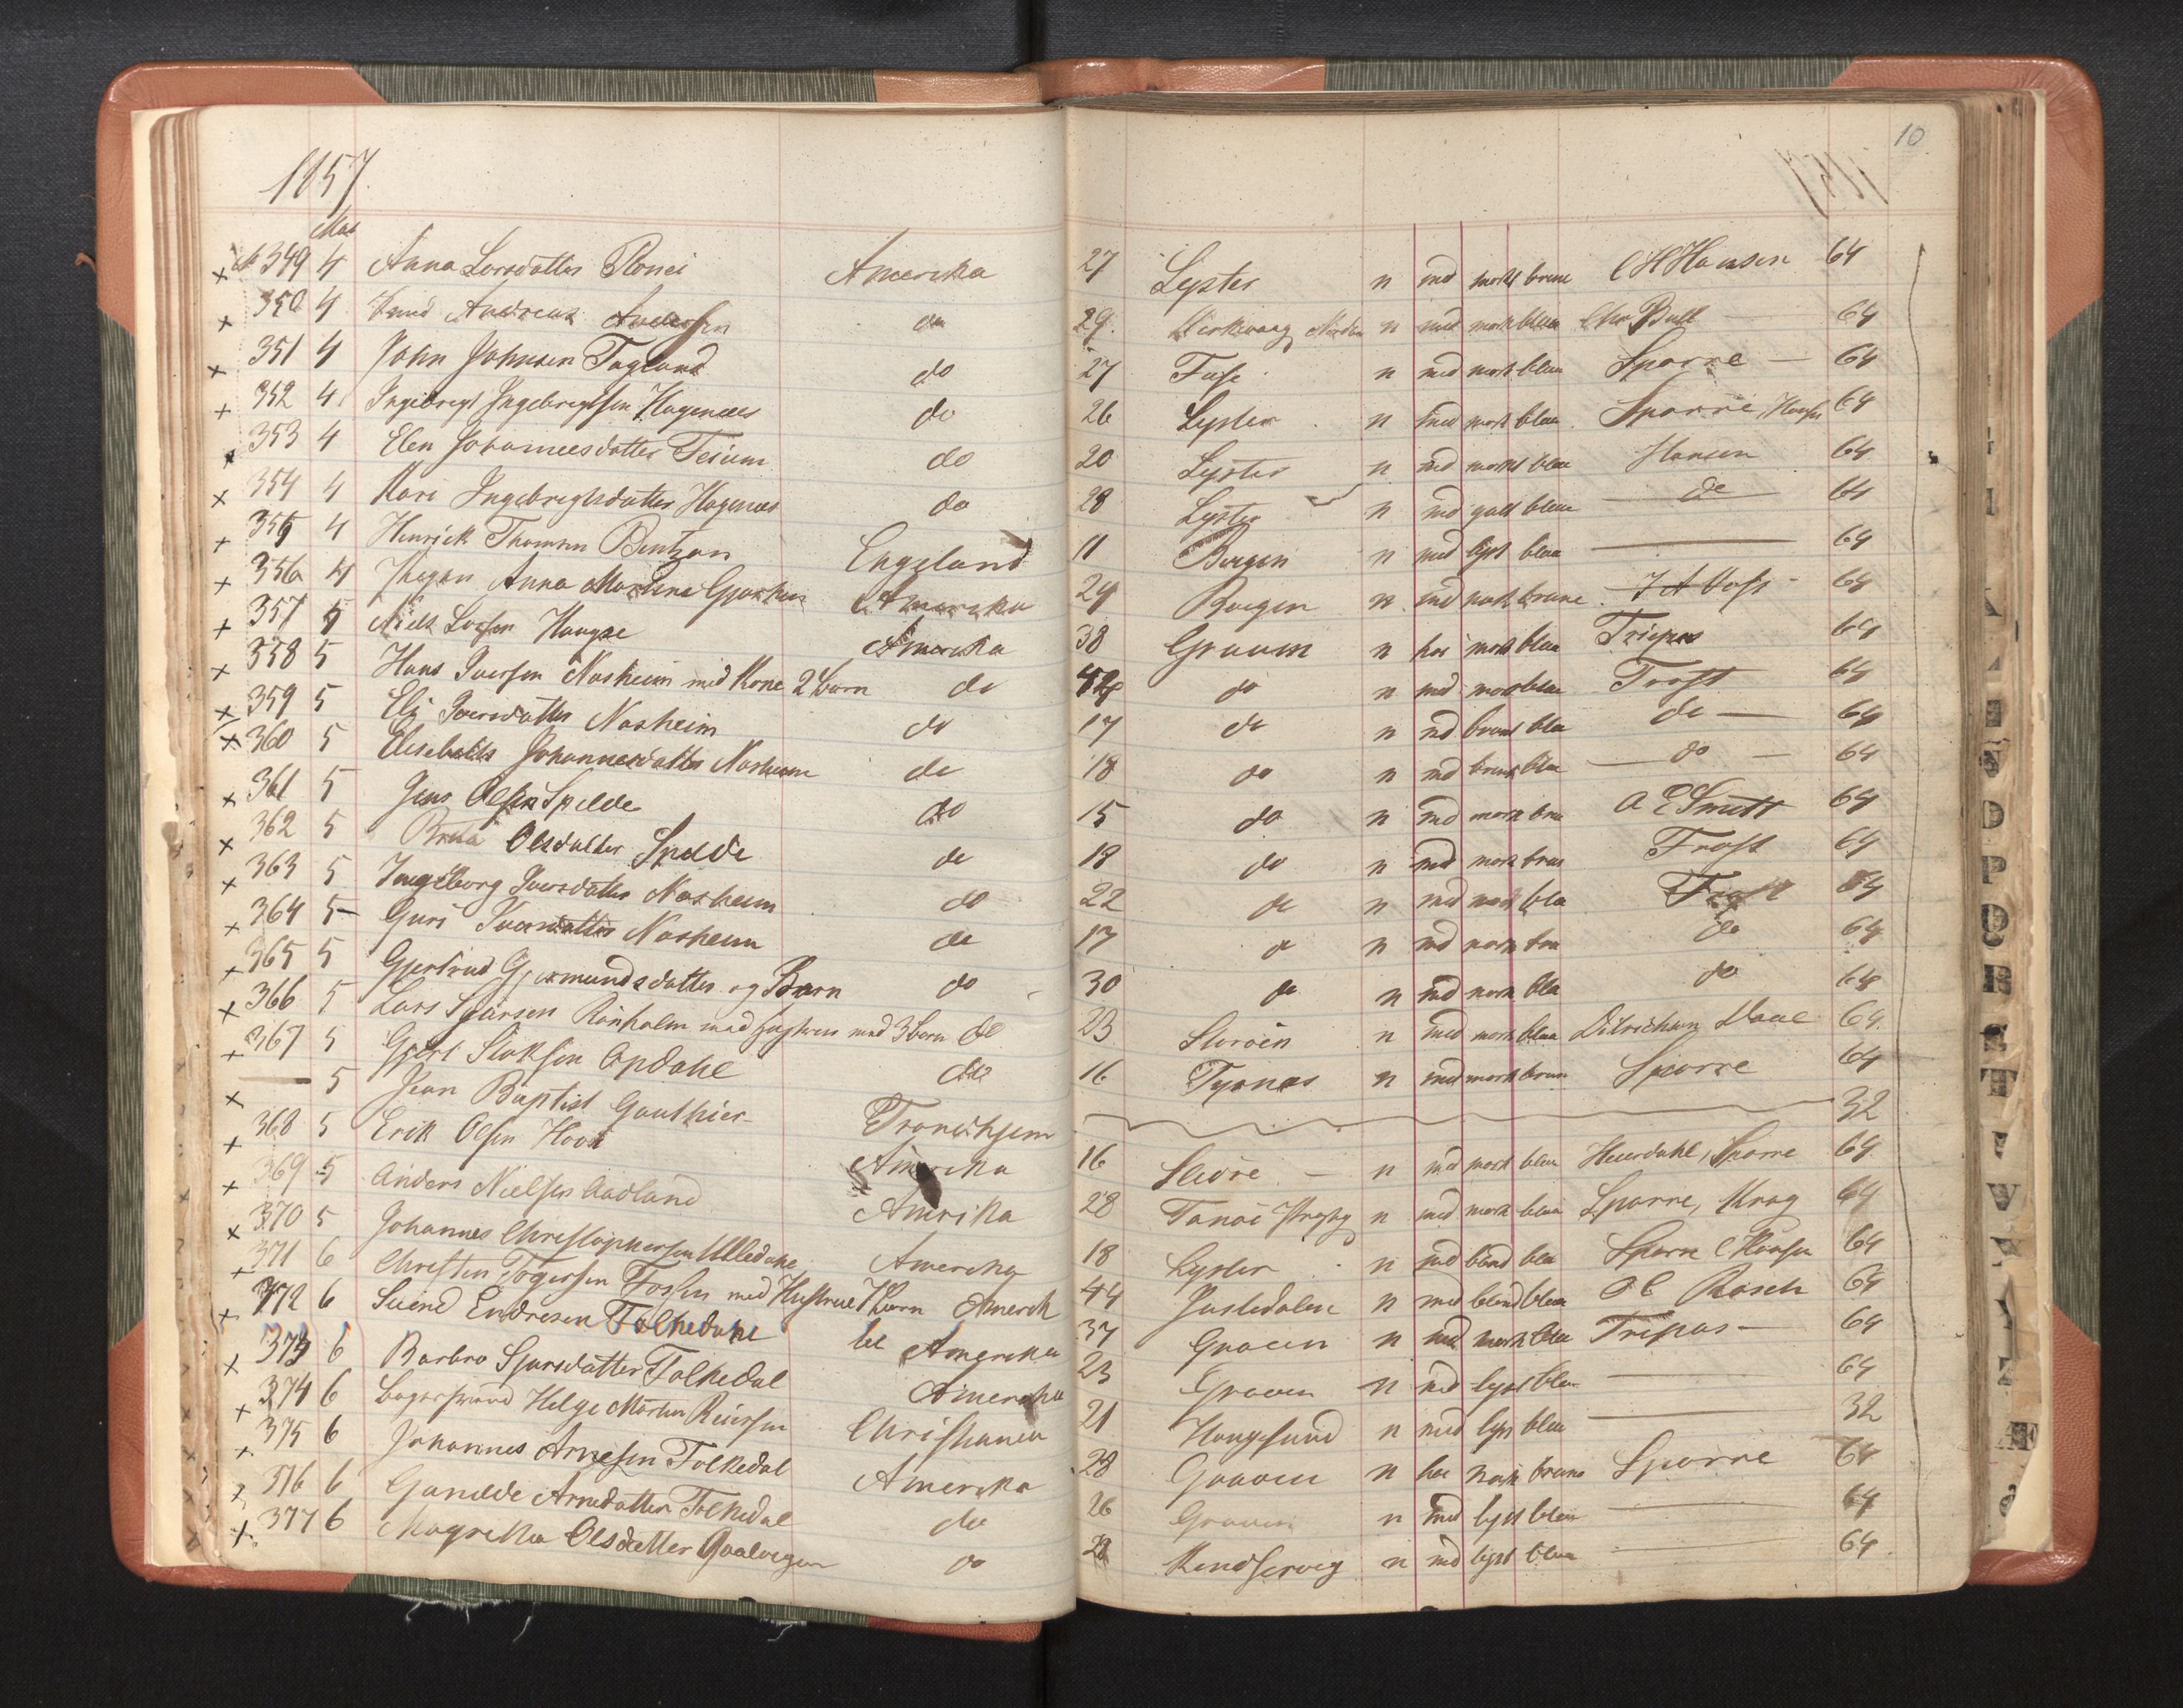 1857
10
1857
Mai
№ 349 4 Anna Larsdatter Amerika 27 Lyster n md mørkt brune C H Hansen 64
350 4 Knud Andreas Andersen do 29 n md mørk blaa Chr Bull — 64
351 4 John Johnsen Tagland do 27 Fuse n md mørk blaa Sparre — 64
352 4 Ingebregt Ingebregtsen Hagenæs do 26 Lyster n md mørk blaa Sparre, 64
353 4 Elen Johannesdatter Teium do 20 Lyster n md mørkt blaa Hansen 64
354 4 Kari Ingebregtsdatter Hagenæs do 28 Lyster n md guult blaa do 64
355 4 Henrick Thomsen Bentzon Engeland 11 Bergen n md lyst blaa — 64
356 4 Anna Martina Amerika 29 Bergen n md mørk brune J A Voss 64
357 5 Niels Larsen Haugse Amerika 38 Graven n høi mørk blaa Tripas 64
358 5 Hans Iversen Nasheim med Kone 2 Barn do do n md mørk blaa Trost 64
359 5 Eli Iversdatter Nasheim do 17 do n md bruunt blaa do — 64
360 5 Elisabeth Johannesdatter Nasheim do 18 do n md bruunt blaa do — 64
361 5 Jens Olsen Spilde do 15 do n md mørk brun A E Smitt 64
362 5 Brita Olsdatter Spilde do 19 do n md mørk brun Trost 64
363 5 Ingeborg Iversdatter Nasheim do 22 do n md mørk blaa Trost 64
364 5 Guri Iversdatter Nasheim do 17 do n md mørk bru do 64
365 5 Gjertrud Gjermundsdatter og Barn do 30 do n md mørk blaa do 64
366 5 Lars Sjursen Rønholm med Hustru med 3 Barn do 23 Storøen n md mørk blaa Ditrichsen 64
367 5 Gjert Sjoksen Opdahl do 16 Tysnæs n md mørk brun Sparre 64
— 5 Jean Baptist Gauthier Trondhjem 32
368 5 Erik Olsen Amerika 16 Slidre — n md mørk blaa Heierdahl, Sparre 64
369 5 Anders Nielsen Aadland Amerika 28 n md mørk blaa Sparre, Krag 64
370 5 Johannes Christophersen Amerika 18 Lyster n md blond blaa Sparre C Hansen 64
371 6 Christen Togersen Fossen med Hustrue 7 Barn Amerik 44 Justedalen n md blond blaa O C Rasch 64
372 6 Svend Endresen Folkedahl til Amerika 37 Graven n md mørk blaa Tripas — 64
373 6 Barbro Sjursdatter Folkedal Amerika 23 Graven n md lyst blaa — 64
374 6 Helge Morten Reiersen Christiania 21 Haugesund n md lyst blaa — 32
375 6 Johannes Arnesen Folkedal Amerika 28 Graven n høi mørk brune Sparre 64
376 6 Gunilde Arnedatter Folkedal do 26 Graven n md lyst blaa — 64
377 6 Magretha Olsdatter do 28 Kindservig n md lyst blaa — 64